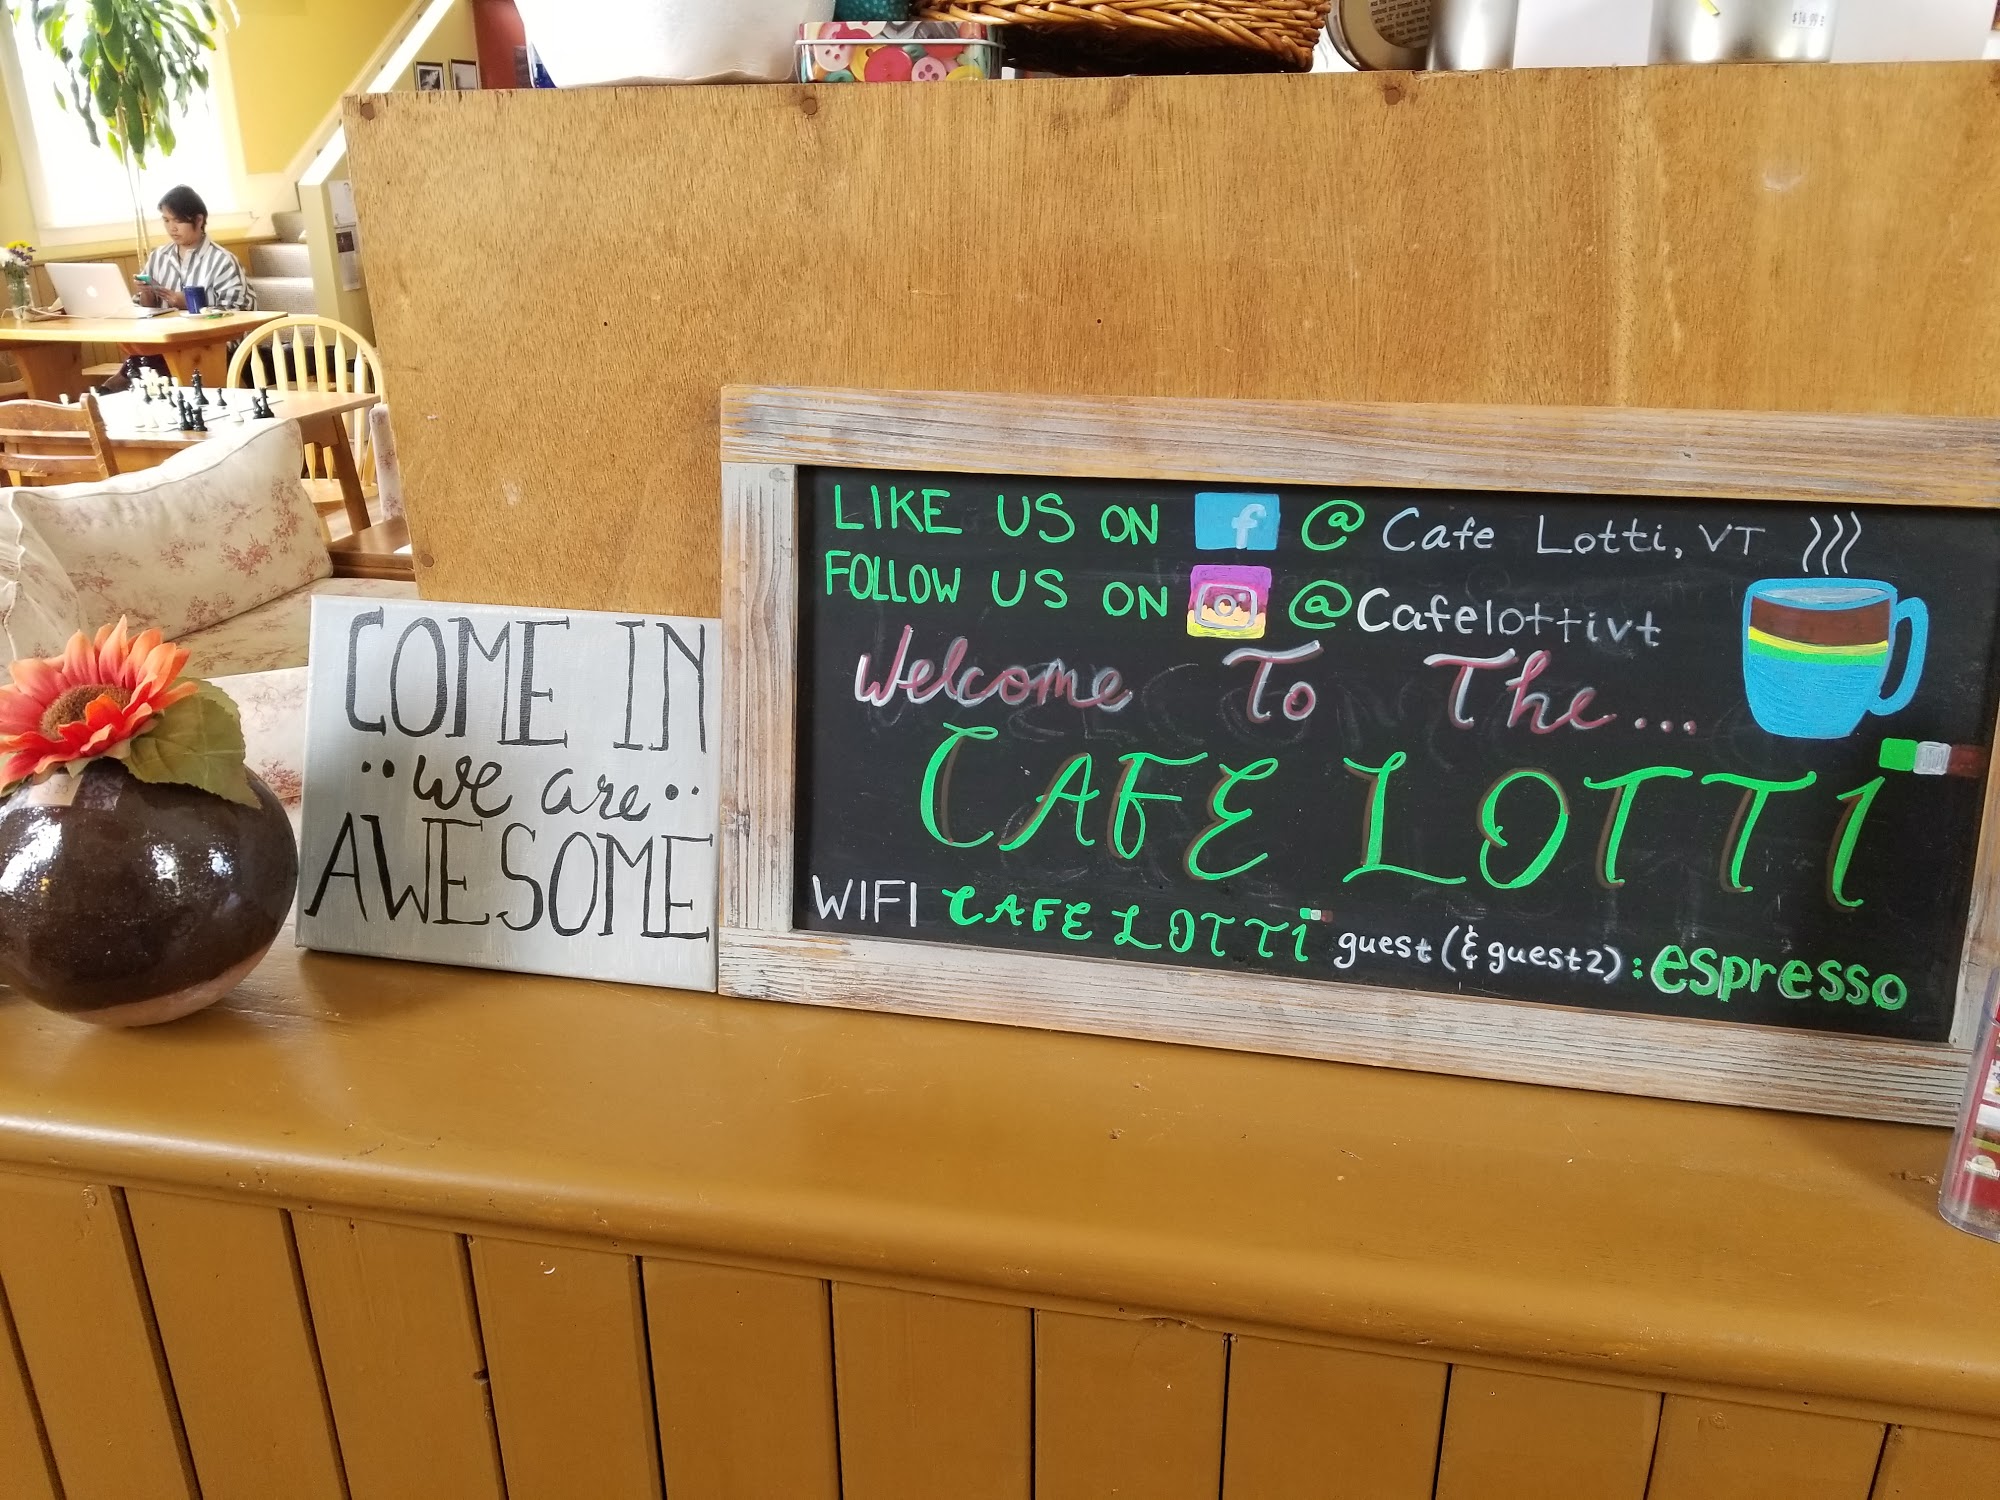 COME IN
we are
AWESOME
LIKE US ON f @ Cafe Lotti, VT
FOLLOW US ON @Cafelottivt
Welcome To The...
CAFE LOTTI
WIFI CAFE LOTTI guest (& guest2): espresso